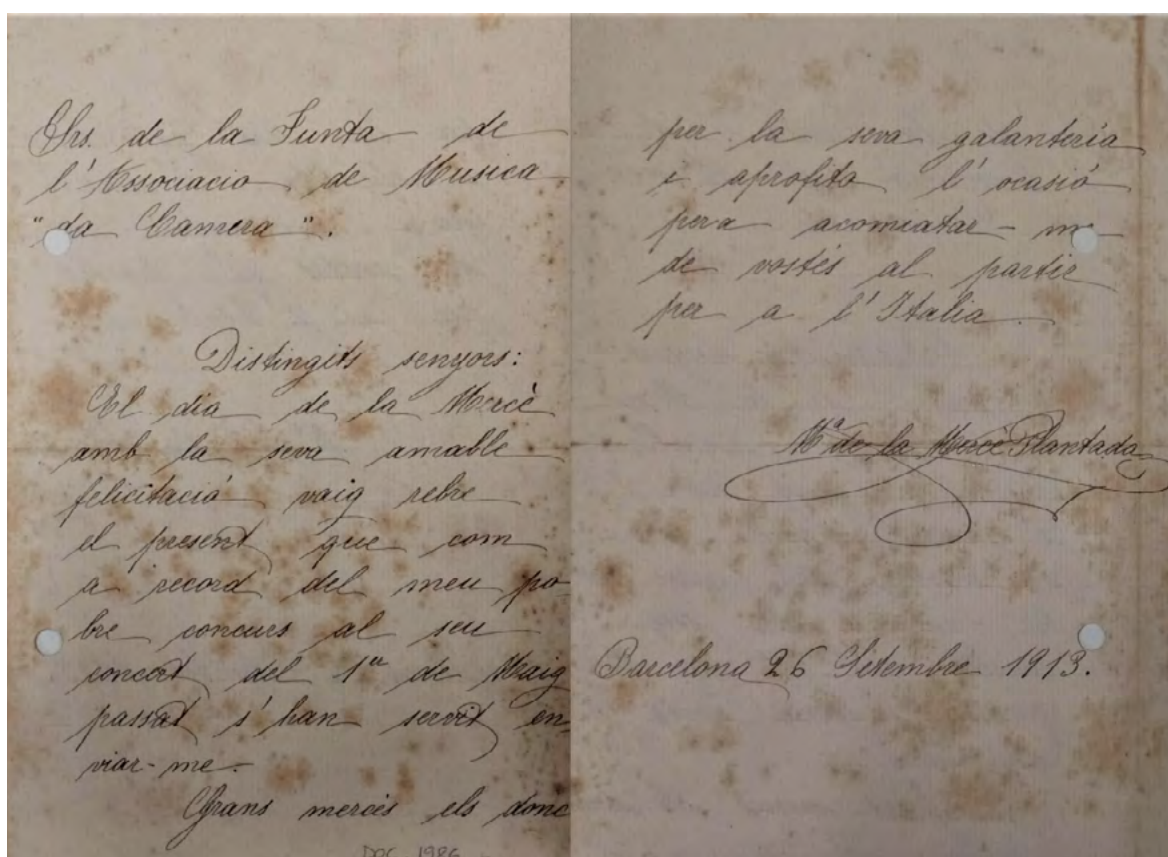 Shs. de la Junta de
l'Associacio de Musica
"da Camera".
Distingits senyors:
El dia de la Mercè
amb la seva amable
felicitació vaig rebre
el present que com
a record del meu po-
bre concurs al seu
concert del 1er de Maig
passat s'han servit en-
viar-me.
Grans mercès els donc
DOC 1986
per la seva galanteria
i aprofito l'ocasió
pera acomiatar-me
de vostés al partir
per a l'Italia.
Mª de la Mercè Plantada
Barcelona 26 Setembre 1913.